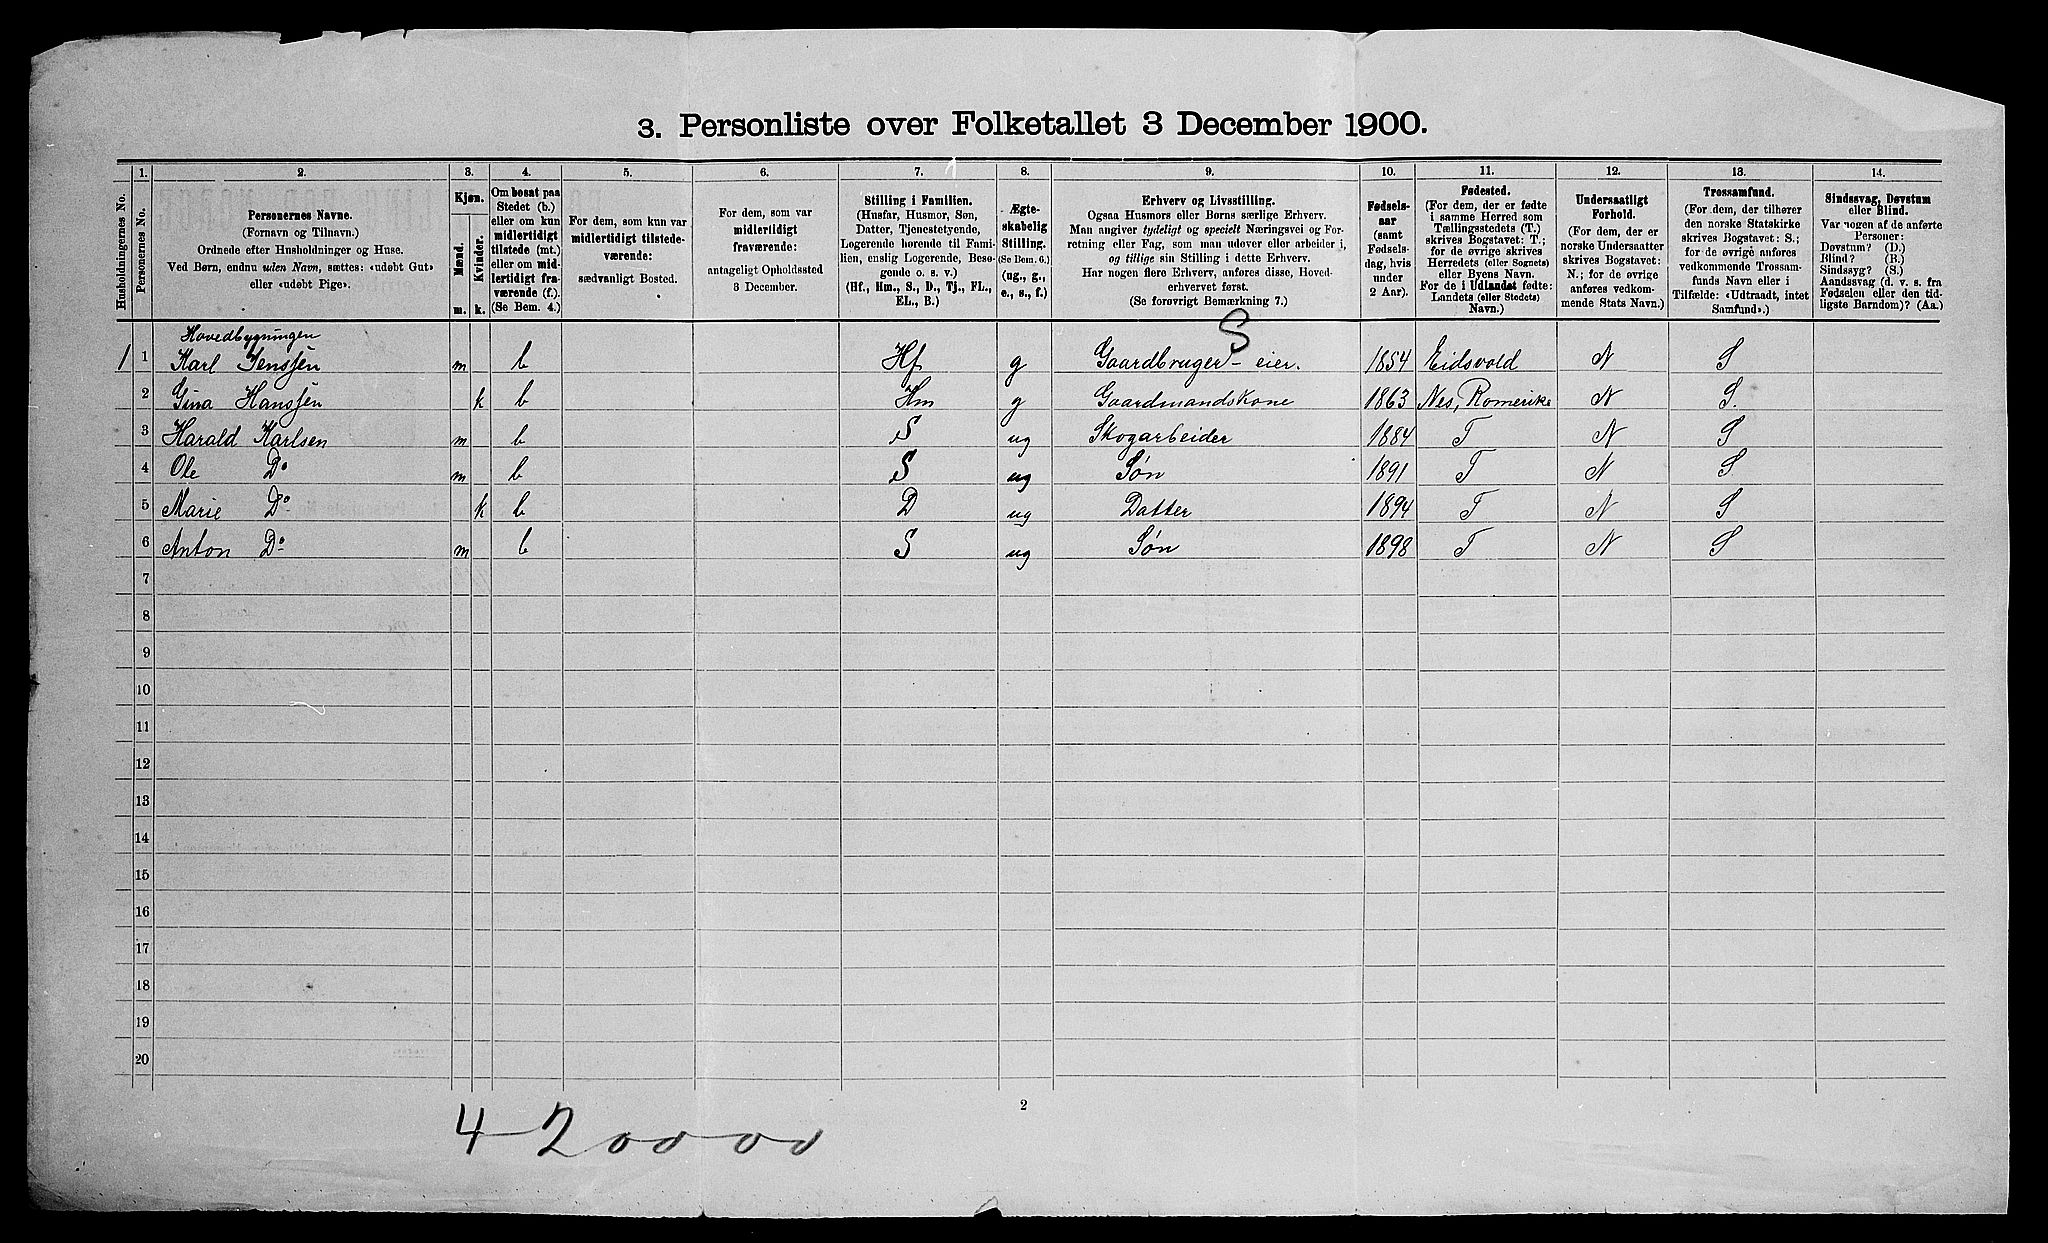 3. Personliste over Folketallet 3 December 1900.
Husholdningernes No.
1.
Personernes No.
2.
Personernes Navne.
(Fornavn og Tilnavn.)
Ordnede efter Husholdninger og Huse.
Ved Børn, endnu uden Navn, sættes: «udøbt Gut»
eller «udøbt Pige».
3.
Kjøn.
Mænd.
Kvinder.
m. k.
4.
Om bosat paa
Stedet (b.)
eller om kun
midlertidigt
tilstede (mt.)
eller om mid-
lertidigt fra-
værende (f.).
(Se Bem. 4.)
5.
For dem, som kun var
midlertidigt tilstede-
værende:
sædvanligt Bosted.
6.
For dem, som var
midlertidigt
fraværende:
antageligt Opholdssted
3 December.
7.
Stilling i Familien.
(Husfar, Husmor, Søn,
Datter, Tjenestetyende,
Logerende hørende til Fami-
lien, enslig Logerende, Besø-
gende o. s. v.)
(Hf., Hm., S., D., Tj., FL.,
EL., B.)
8.
Ægte-
skabelig
Stilling.
(Se Bem. 6.)
(ug., g.,
e., s., f.)
9.
Erhverv og Livsstilling.
Ogsaa Husmors eller Børns særlige Erhverv.
Man angiver tydeligt og specielt Næringsvei og For-
retning eller Fag, som man udøver eller arbeider i,
og tillige sin Stilling i dette Erhverv.
Har nogen flere Erhverv, anføres disse, Hoved-
erhvervet først.
(Se forøvrigt Bemærkning 7.)
10.
Fødsels-
aar
(samt
Fødsels-
dag, hvis
under
2 Aar).
11.
Fødested.
(For dem, der er fødte
i samme Herred som
Tællingsstedets (T.)
skrives Bogstavet: T.;
for de øvrige skrives
Herredets (eller Sognets)
eller Byens Navn.
For de i Udlandet fødte:
Landets (eller Stedets)
Navn.)
12.
Undersaatligt
Forhold.
(For dem, der er
norske Undersaatter
skrives Bogstavet:
N.; for de øvrige
anføres vedkom-
mende Stats Navn.)
13.
Trossamfund.
(For dem, der tilhører
den norske Statskirke
skrives Bogstavet: S.;
for de øvrige anføres
vedkommende Trossam-
funds Navn eller i
Tilfælde: «Udtraadt, intet
Samfund».)
14.
Sindssvag, Døvstum
eller Blind.
Var nogen af de anførte
Personer:
Døvstum? (D.)
Blind? (B.)
Sindssyg? (S.)
Aandssvag (d. v. s. fra
Fødselen eller den tid-
ligste Barndom)? (Aa.)
Hovedbygningen S
1 1 Karl Jenssen m b Hf g Gaardbruger - eier. 1854 Eidsvold N S
2 Gina Hanssen k b Hm g Gaardmandskone 1863 Nes, Romerike N S.
3 Harald Karlsen m b S ug Skogarbeider 1884 T N S
4 Ole Do m b S ug Søn 1891 T N S
5 Marie Do k b D ug Datter 1894 T N S
6 Anton Do m b S ug Søn 1898 T N S
7
8
9
10
11
12
13
14
15
16
17
18
19
20
2
4-20000